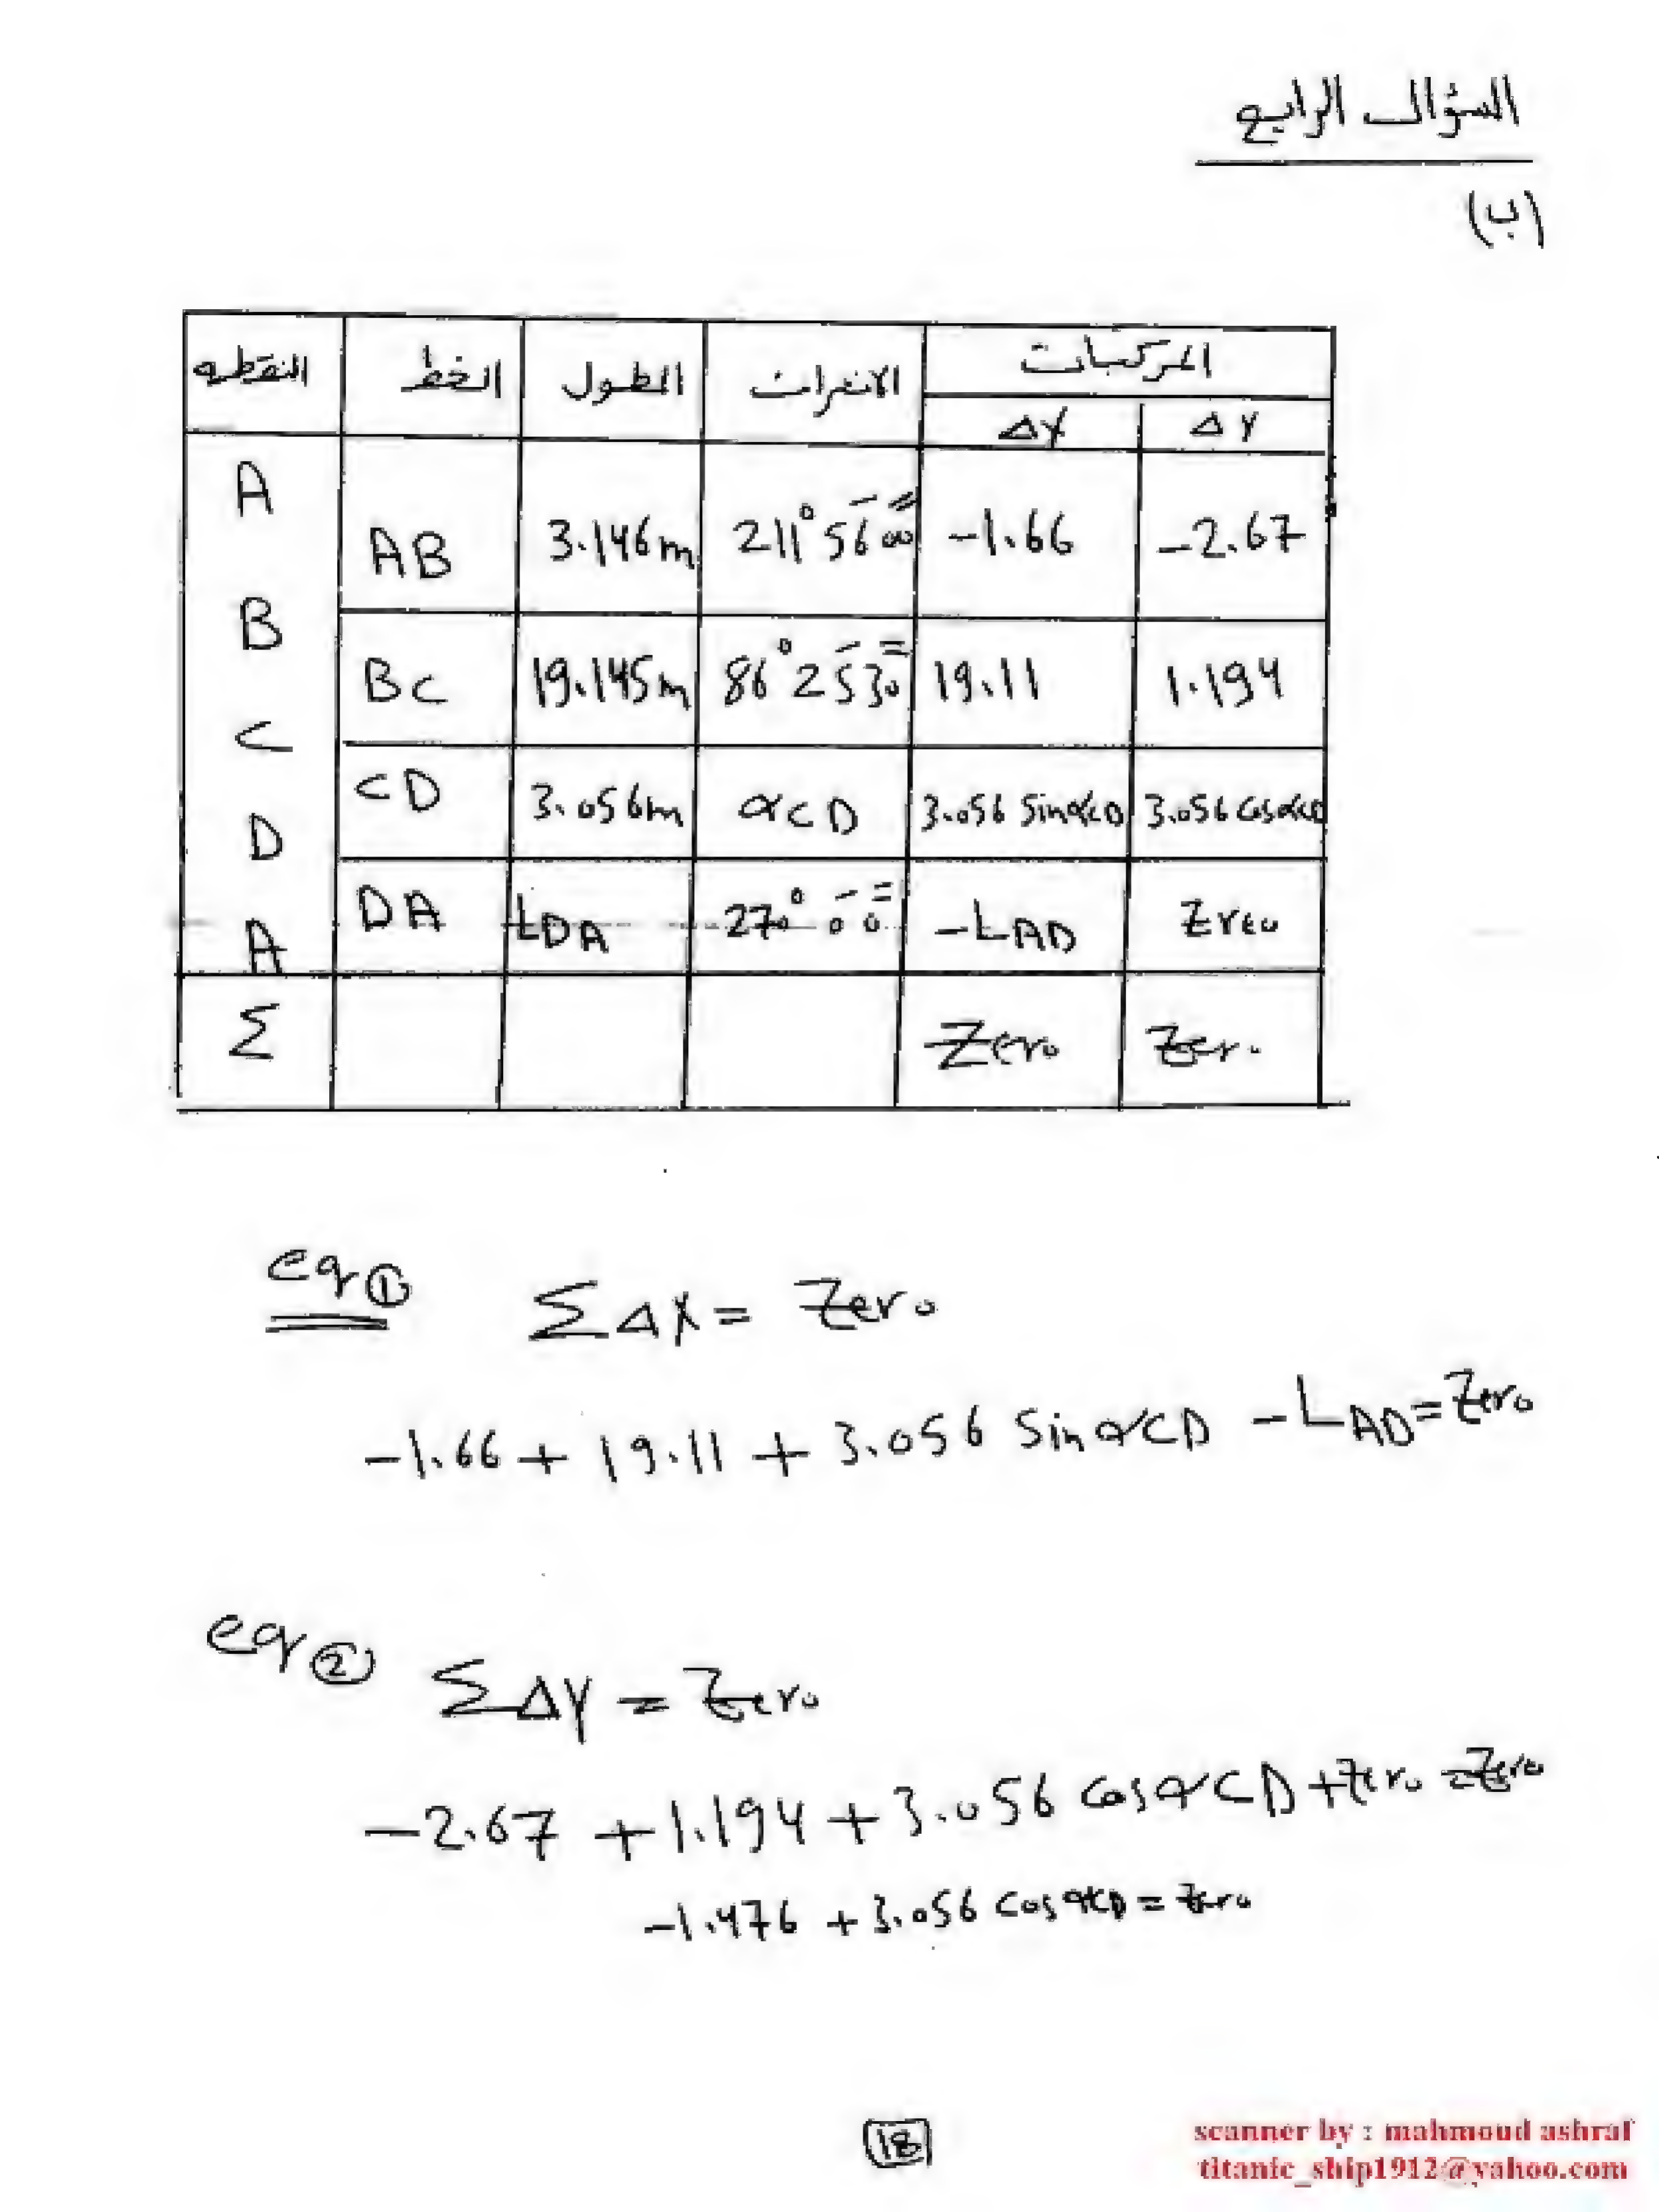 السؤال الرابع
(ب)
النقطه الخط الطول الانحراف المركبات
ΔX ΔY
A
AB 3.146m 211° 56' 00" -1.66 -2.67
B
BC 19.145m 86° 25' 30" 19.11 1.194
C
CD 3.056m αCD 3.056 sinαCD 3.056 cosαCD
D
DA LDA 270° 0' 0" -LAD Zreo
A
Σ Zero Zero
eq ① ΣΔX = Zero
-1.66 + 19.11 + 3.056 sin αCD - LAD = Zero
eq ② ΣΔY = Zero
-2.67 + 1.194 + 3.056 cos αCD + Zero = Zero
-1.476 + 3.056 cos αCD = Zero
18
scanner by : mahmoud ashraf
titanic_ship1912@yahoo.com